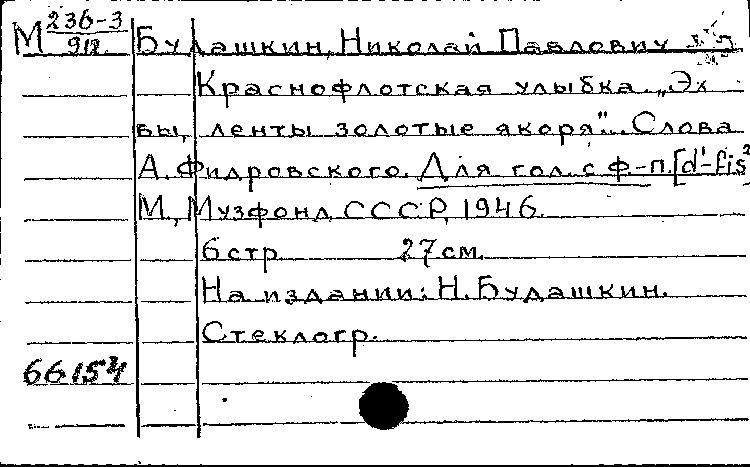 М 236-3/912 Будашкин, Николай Павлович
Краснофлотская улыбка. „Эх
вы, ленты золотые якоря"... Слова
А. Фидровского. Для гол. с ф-п. [d¹-fis²
М., Музфонд СССР, 1946.
6 стр. 27 см.
На издании: Н. Будашкин.
Стеклогр.
66154